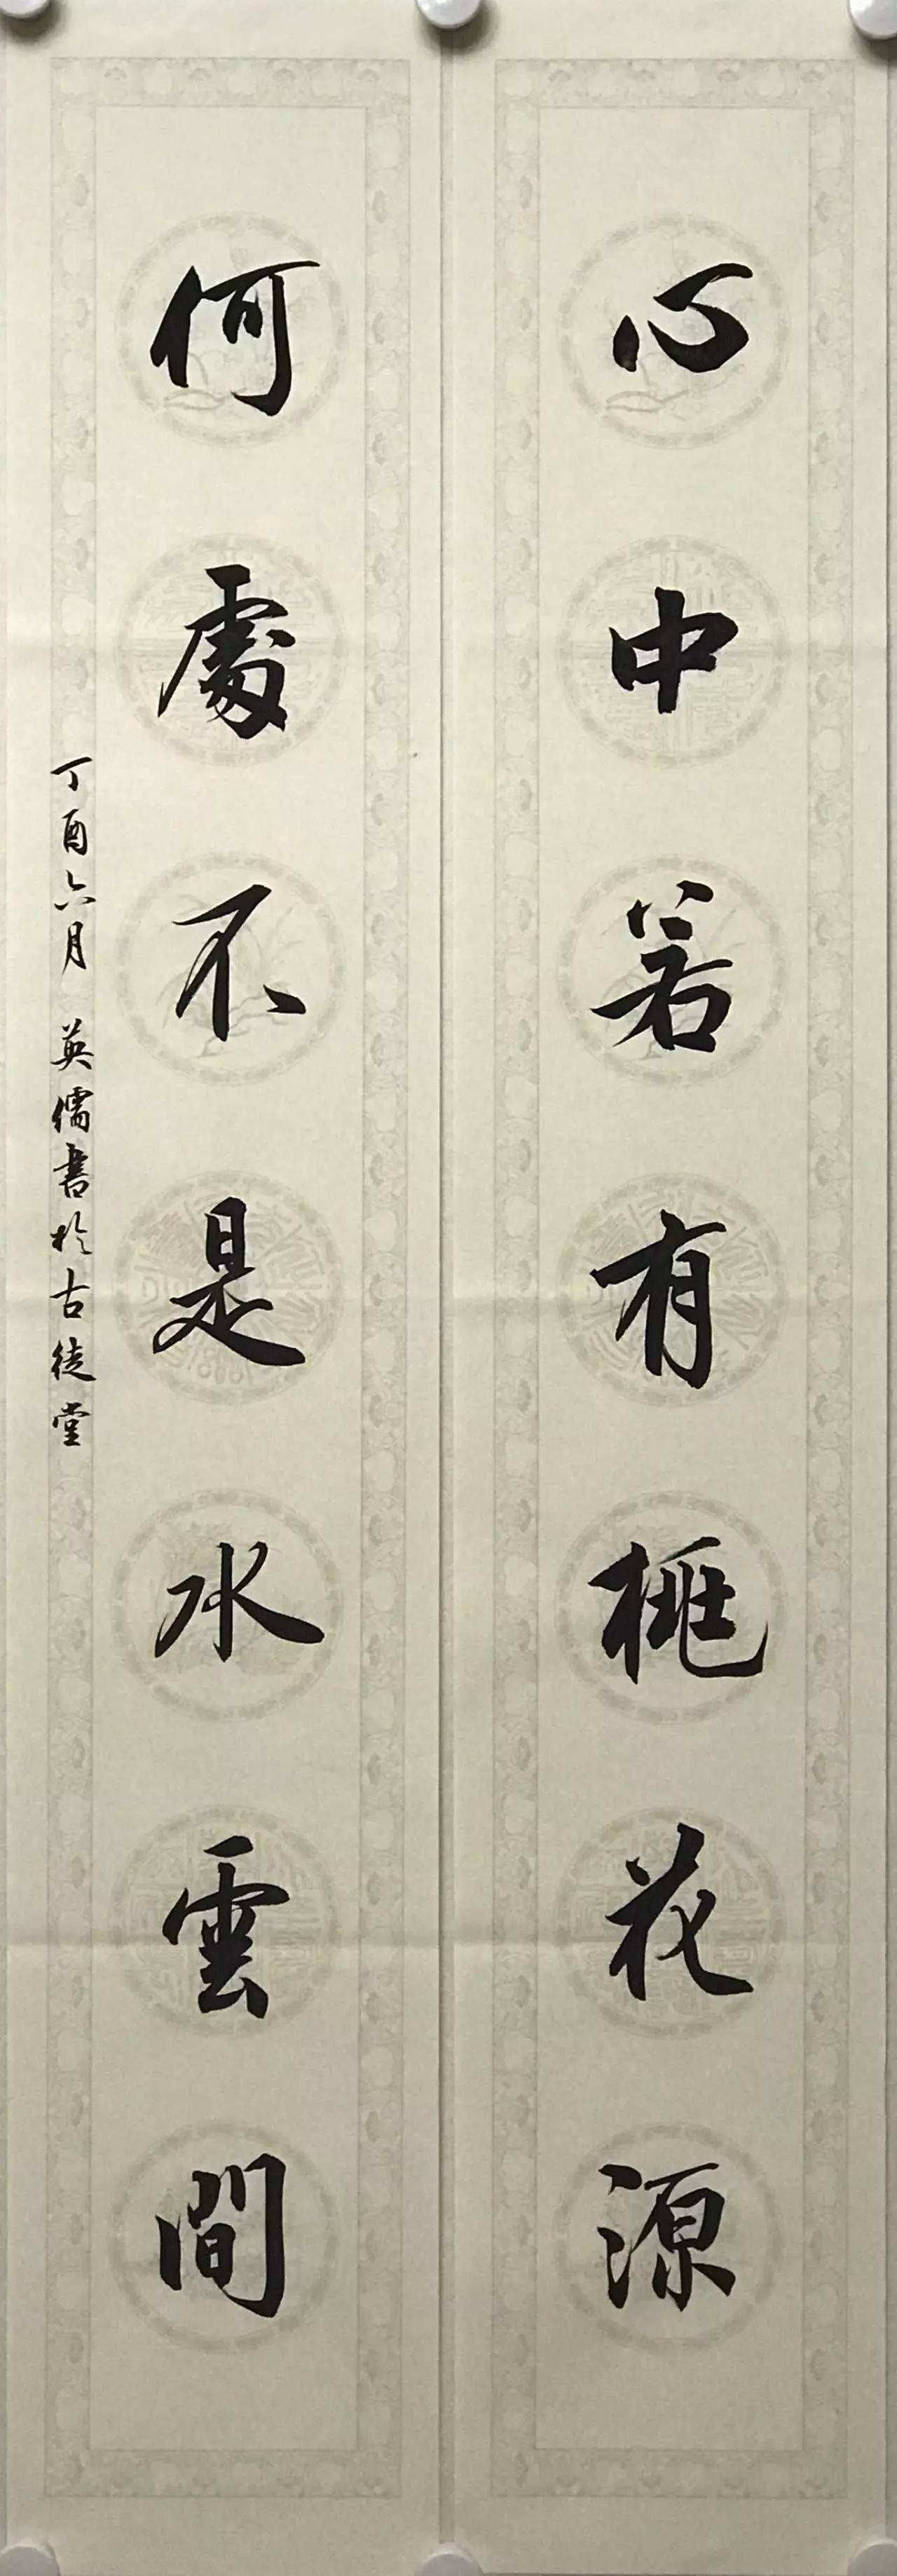 心中若有桃花源
何處不是水雲間
丁酉六月 英儒書於古徒堂